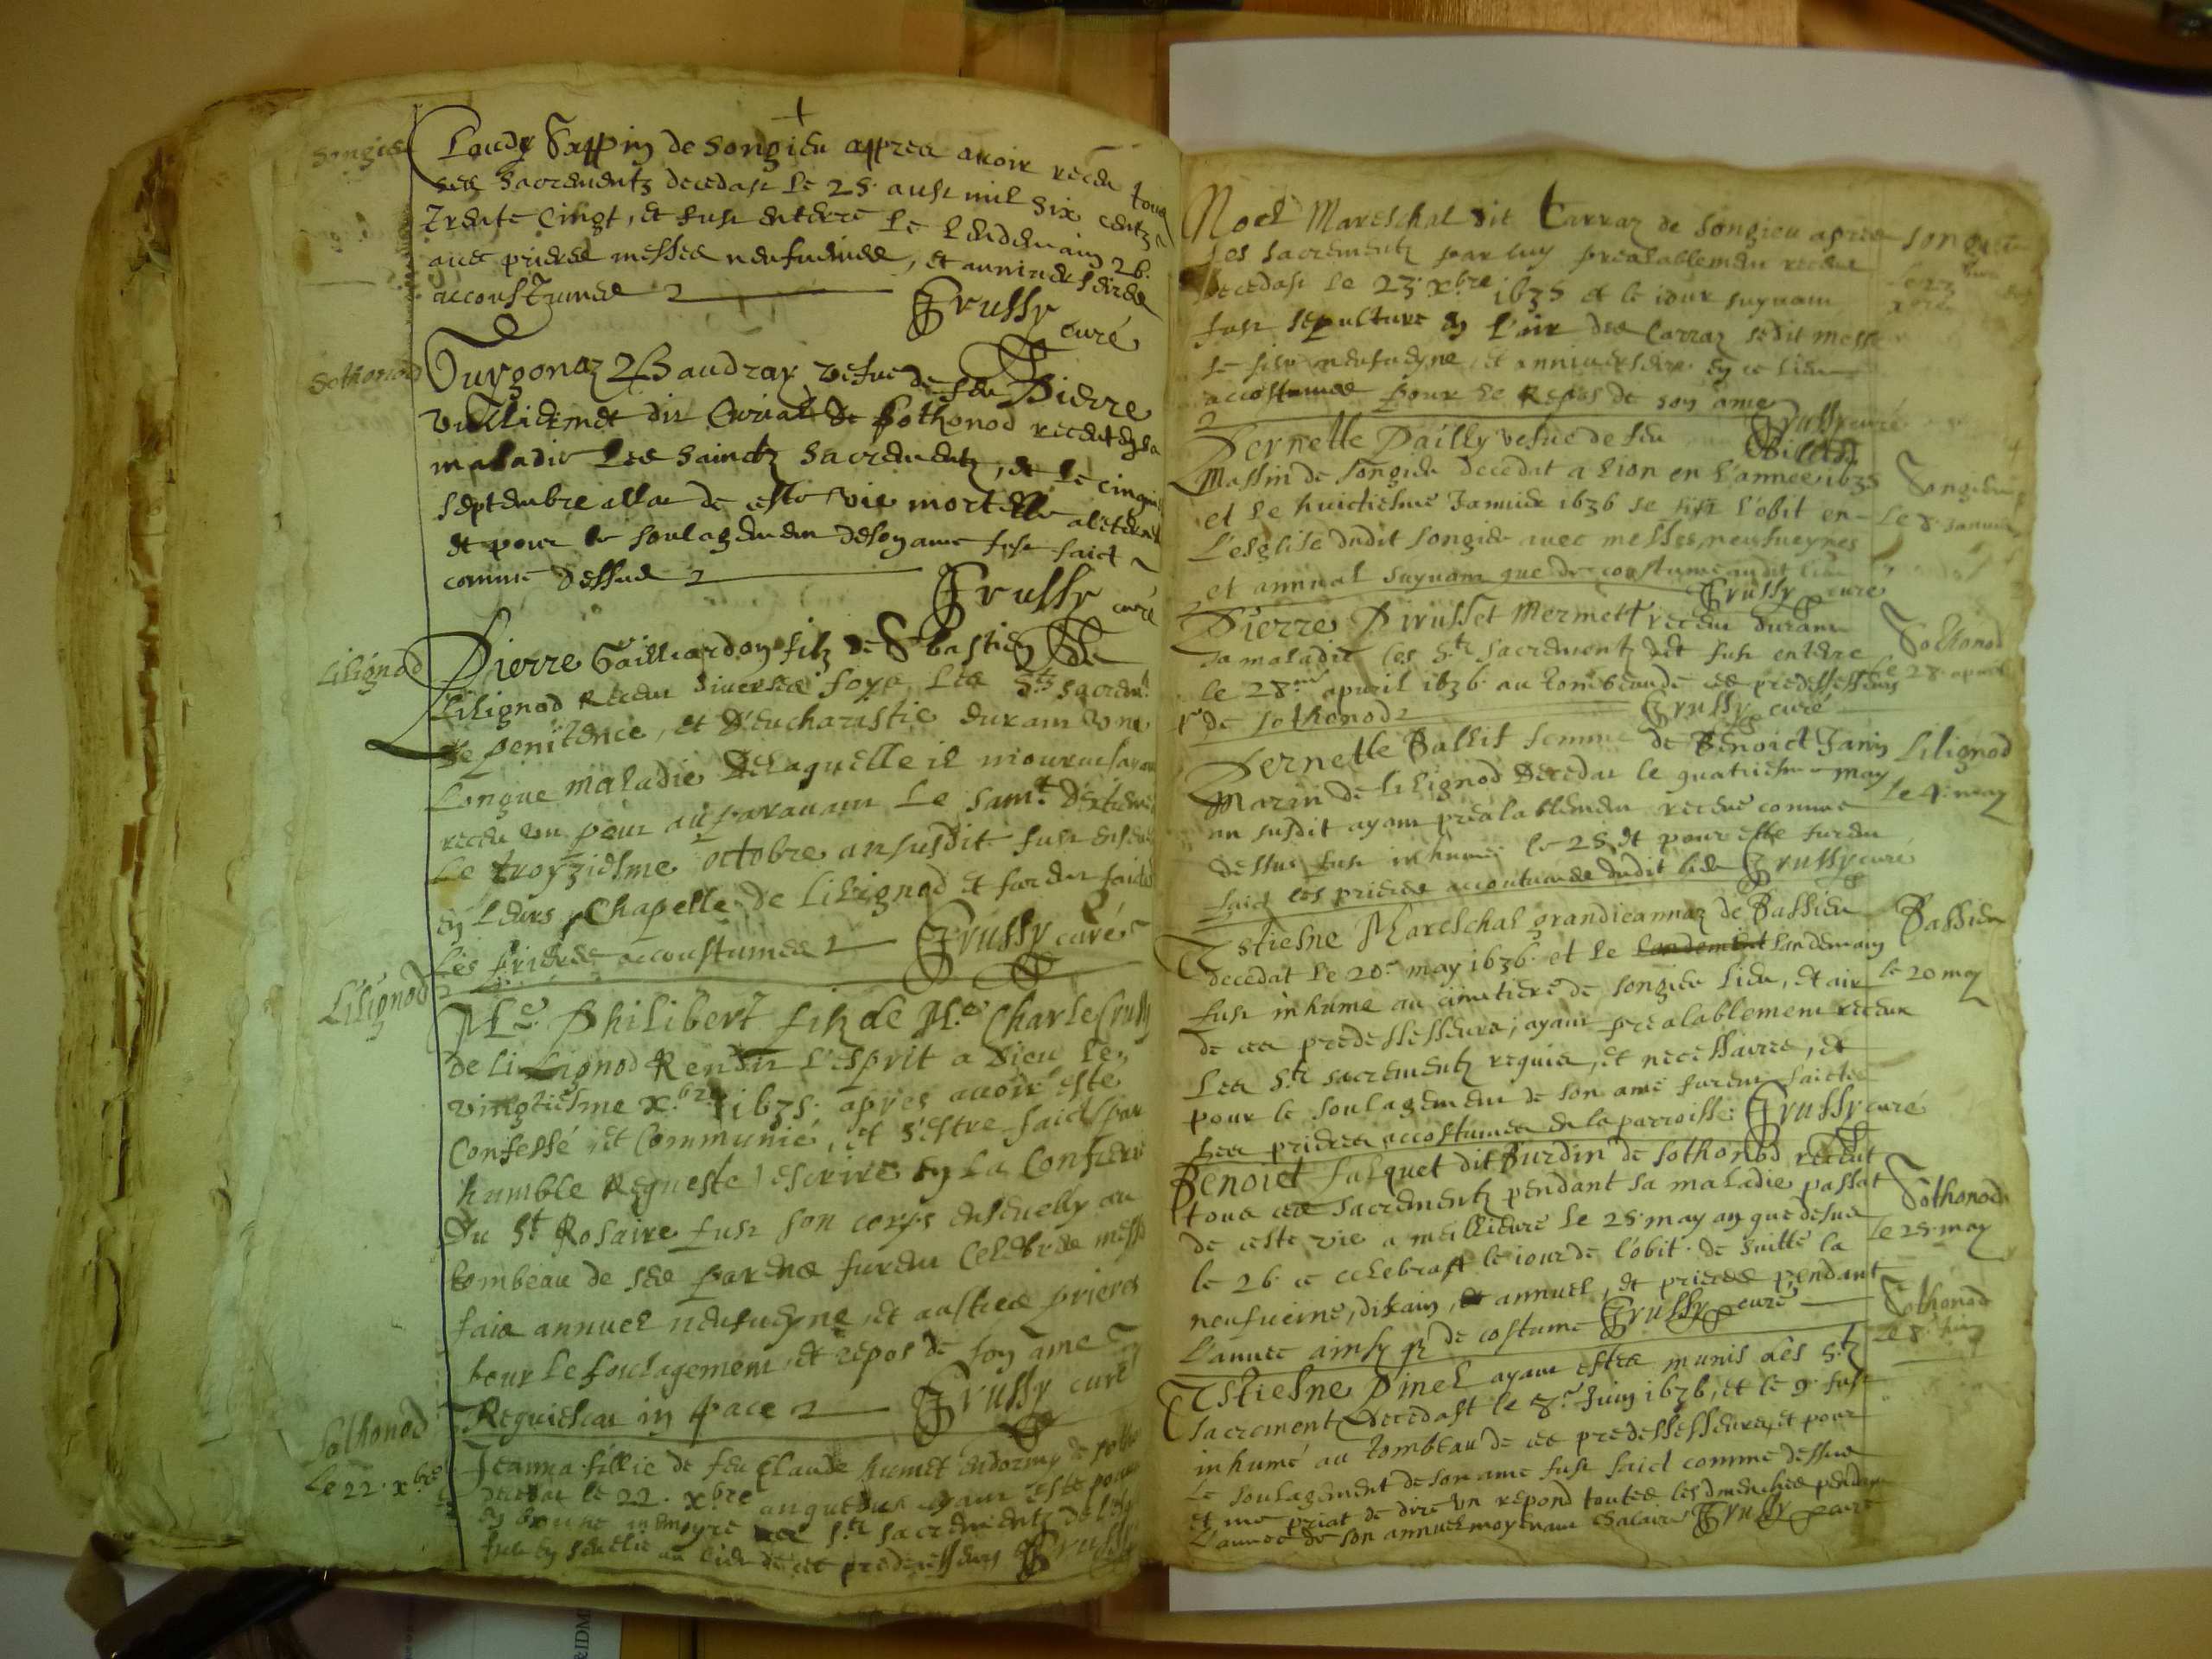 Songieu
Claudy Sappin de Songieu appres avoir receu tous
ses sacrementz decedast le 25 aust mil six centz
trente cinqt, et fust enterré le lendemain 26.
avec prieres messes neufueines, et anniversere
accoustumes
Grussy
curé
Sothonod
Guygonaz Baudray vefue de feu Pierre
Vulliermet dit Curial de Sothonod receut en sa
maladie les sainctz sacrementz, et le cinqui
septembre allat de ceste vie mortelle a l'eternel
et pour le soulagement de son ame fust faict
comme dessus
Grussy curé
Lilignod
Pierre Gailliardon filz de Sebastien de
Lilignod receu diverses foys les Stz sacremtz
de penitence, et d'eucharistie durant une
longue maladie de laquelle il mourust ayant
receu un peur auparavant le samt d'extreme
le troyziesme octobre an susdit fust ensev
en leurs Chapelle de Lilignod et furent faict
les prieres accoustumees Grussy curé
Lilignod
Mre Philibert filz de Me Charle Crussy
de Lilignod rendit l'esprit a Dieu le
vingtiesme xbre 1635. apres avoir esté
Confessé et Communié, et s'estre faict par
humble requeste escrire en la Confrerie
du St Rosaire fust son corps ensevelly au
tombeau de ses parens furent celebrés messe
faict annuel neufueyne et austres prieres
pour le soulagement et repos de son ame
Requiescat in pace Grussy curé
Sothonod
le 22. xbre
Jeanna fillie de feu Claude humet endormy de Sotho
decedat le 22. xbre an que dessus ayant esté
en bonne memoyre des Sts sacrements de
fust ensevelie au lieu de ces predecesseurs Grussy
Noel Mareschal dit Carraz de Songieu apres
les sacrementz par luy prealablement receus
decedast le 23. xbre 1635 et le iour suyvant
fust sepulturé en l'air des Carraz se dit messe
se fist neufueyne, et anniversere en ce lieu
accostumes pour le repos de son ame
Grussy curé
Songieu
le 23
xbre
Pernette Pailly vefue de feu
Massin de Songieu decedat a Lion en l'année 1635
et le huictiesme Januier 1636 se fist l'obit en
l'esglise dudit Songieu avec messes, neufueynes
et annual suyvant que de coustume audit lieu
Grussy curé
Songieu
le 8. Januier
Pierre Pirusset Mermett receu durant
sa maladie les Sts sacrementz et fust enterré
le 28me apuril 1636. au tombeau de ces predessesseurs
de Sothonod Grussy curé
Sothonod
le 28. apuril
Pernette Ballif femme de Benoict Janin
Marin de Lilignod decedat le quatriesme may
an susdit ayant prealablement receue comme
dessus fust inhumée le 25 et pour elle furent
faict les prieres accoutumees dudit lieu Grussy curé
Lilignod
le 4. may
Estiesne Mareschal grandieannaz de Bassieu
decedat le 20e may 1636. et le landemain
fust inhume au cimetiere de Songieu lieu, et air
de ces predessesseurs, ayant prealablement receux
les Sts sacrementz requis, et necessaires, et
pour le soulagement de son ame furent faictes
les prieres accostumees en la parroisse Grussy curé
Bassieu
le 20 may
Benoict Falquet dit Burdin de Sothonod receut
tous ces sacrementz pendant sa maladie passat
de ceste vie a meillieure le 25. may an que desus
le 26. ce celebrast le iour de l'obit. de suitte la
neufueine, dixain, et annuel, et prieres pendant
l'annee ainsy q de costume Grussy curé
Sothonod
le 25. may
Estiesne Pinel ayant estee munis des Stz
sacrementz decedast le 8e Juin 1636, et le 9. fust
inhumé au tombeau de ces predessesseurs, et pour
le soulagement de son ame fust faict comme dessus
et me priat de dire un repond toutes les dimenches pendant
l'annee de son annuel moyenant salaire Grussy curé
Sothonod
le 8. Juin